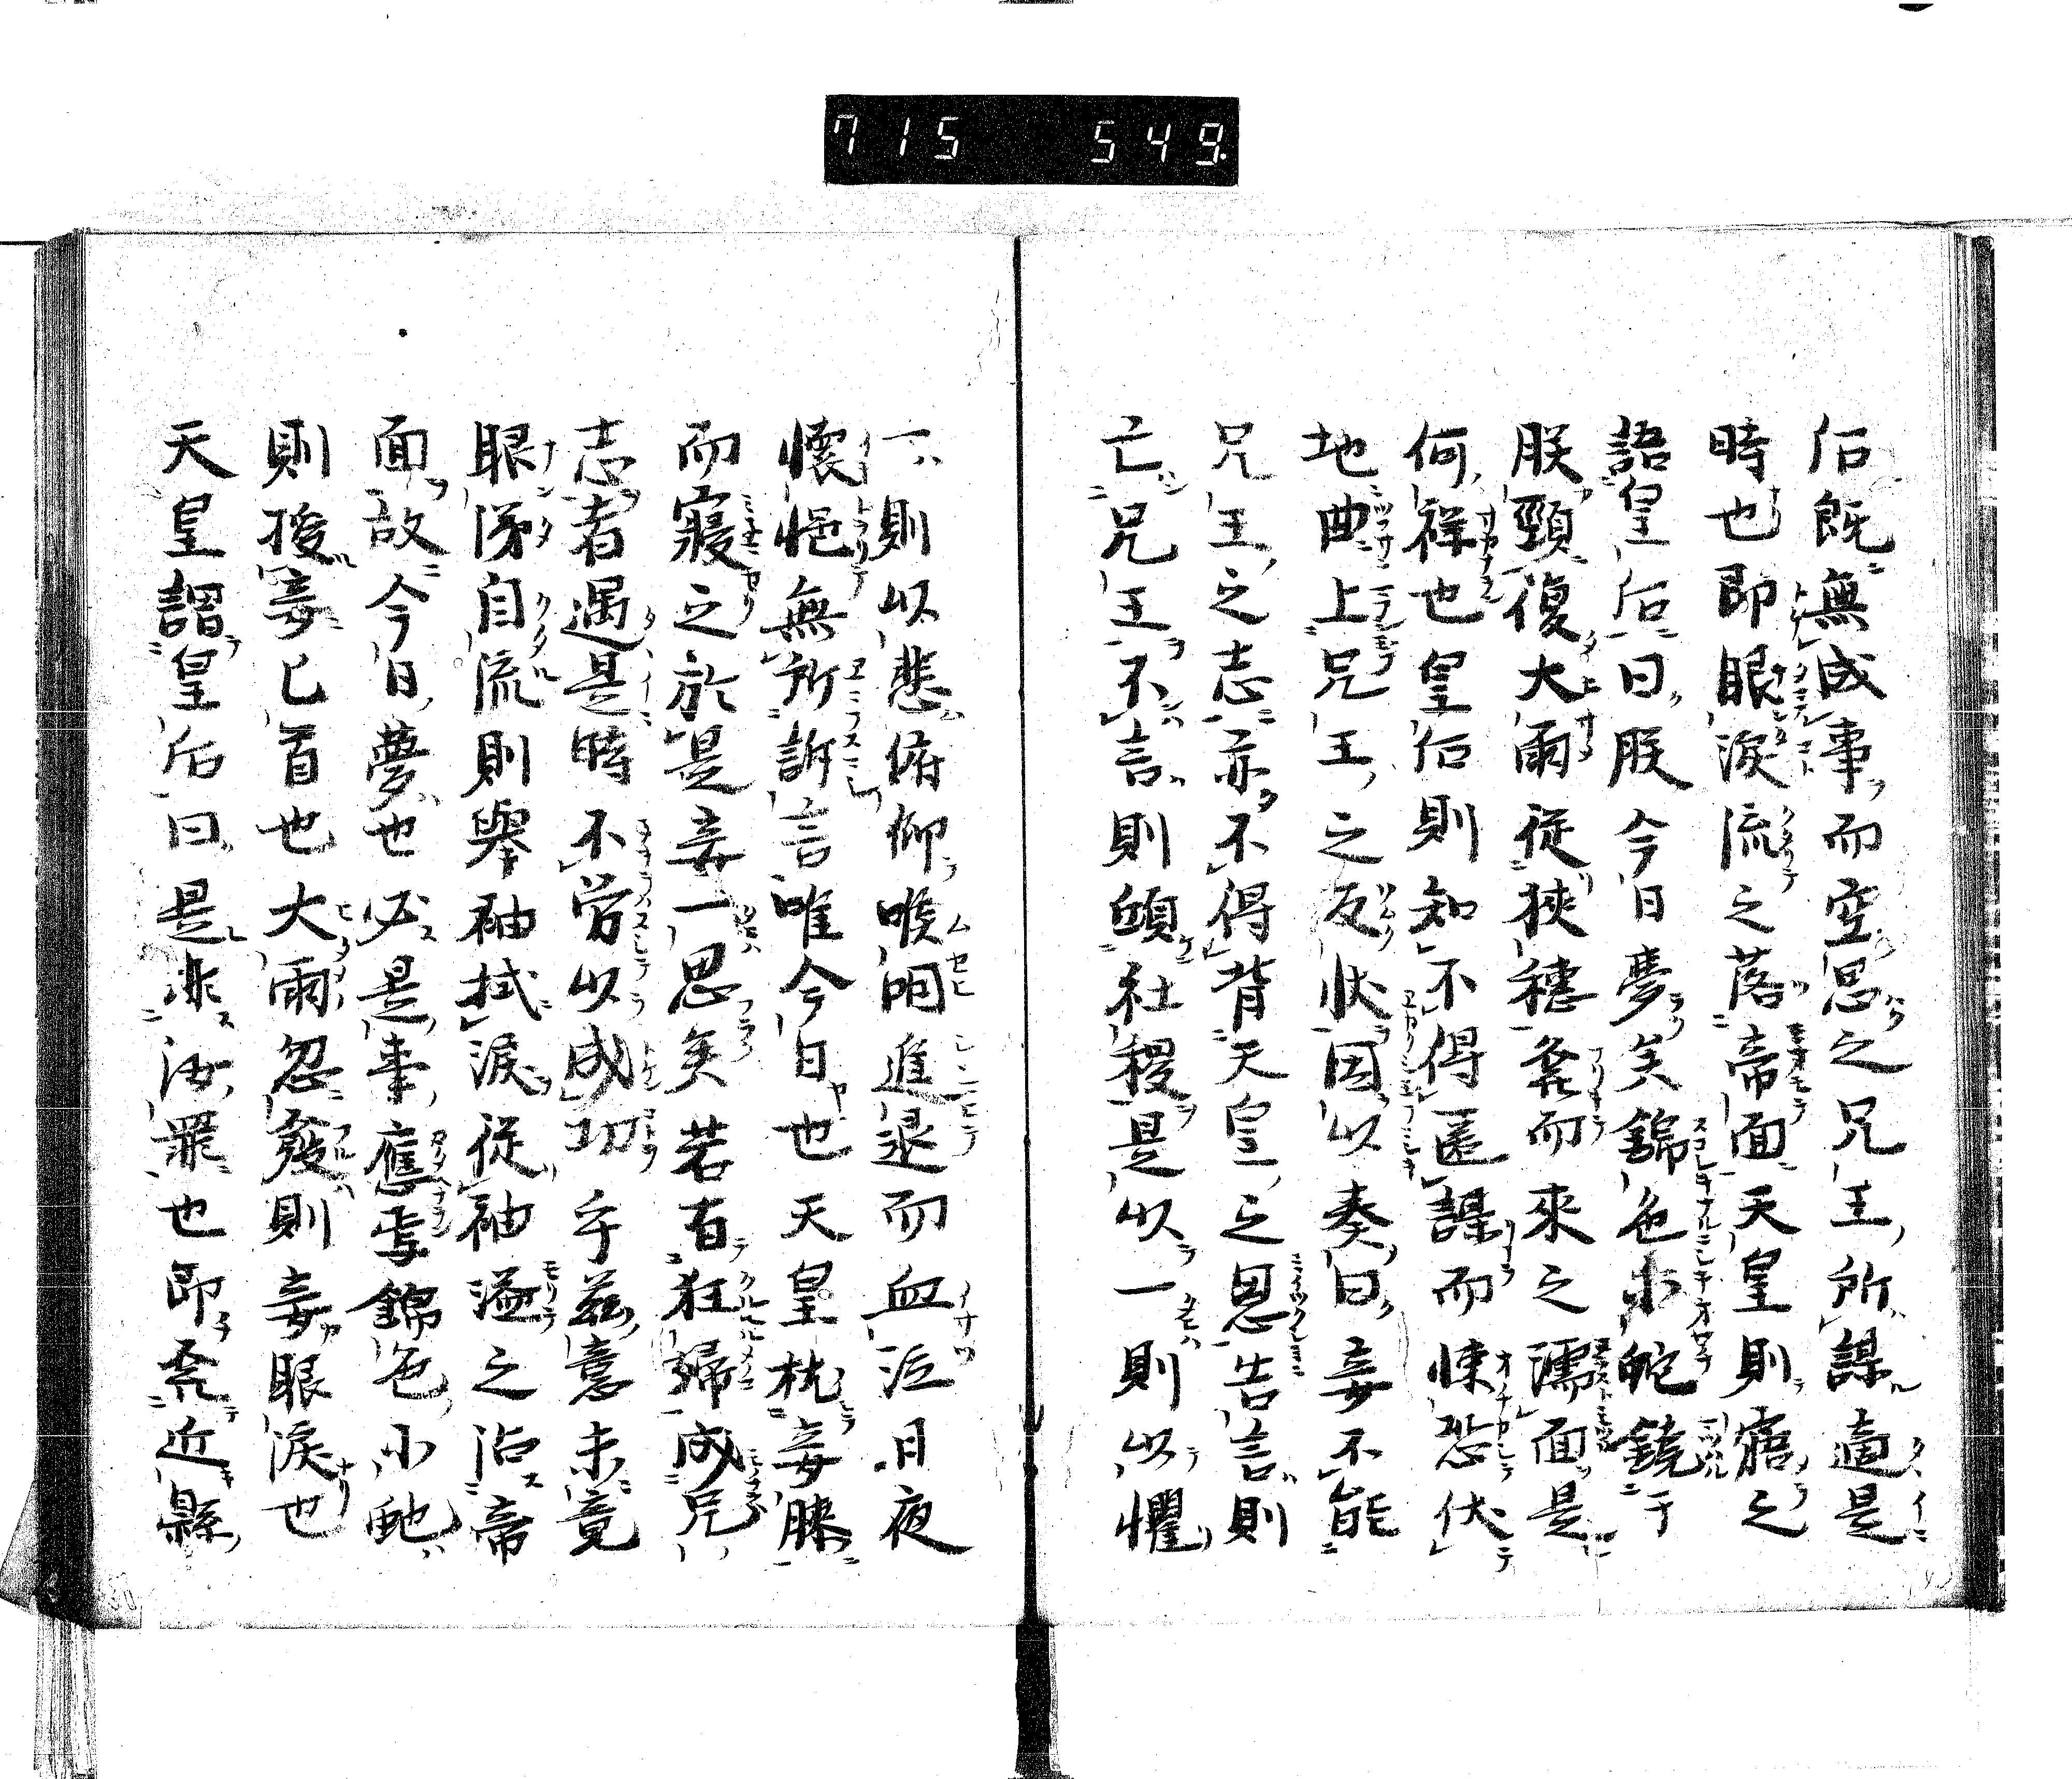 715 549.
后既無成事而空思之兄王所謀適是
時也即眼淚流之落帝面天皇則寤之
語皇后曰朕今日夢矣錦色小蛇繞于
朕頸復大雨從狹穗發而來之濡面是
何祥也皇后則知不得匿謀而悚恐伏
地曲上兄王之反狀因以奏曰妾不能
兄王之志亦不得背天皇之恩告言則
亡兄王不言則傾社稷是以一則以懼
一則以悲俯仰喉咽進退而血泣日夜
懷悒無所訴言唯今日也天皇枕妾膝
而寢之於是妾一思矣若有狂婦成兄
志者遇是時不労以成功乎茲意未竟
眼涕自流則舉袖拭淚從袖溢之沾帝
面故今日夢也必是事應焉錦色小蛇
則授妾匕首也大雨忽發則妾眼淚也
天皇謂皇后曰是非汝罪也即發近縣